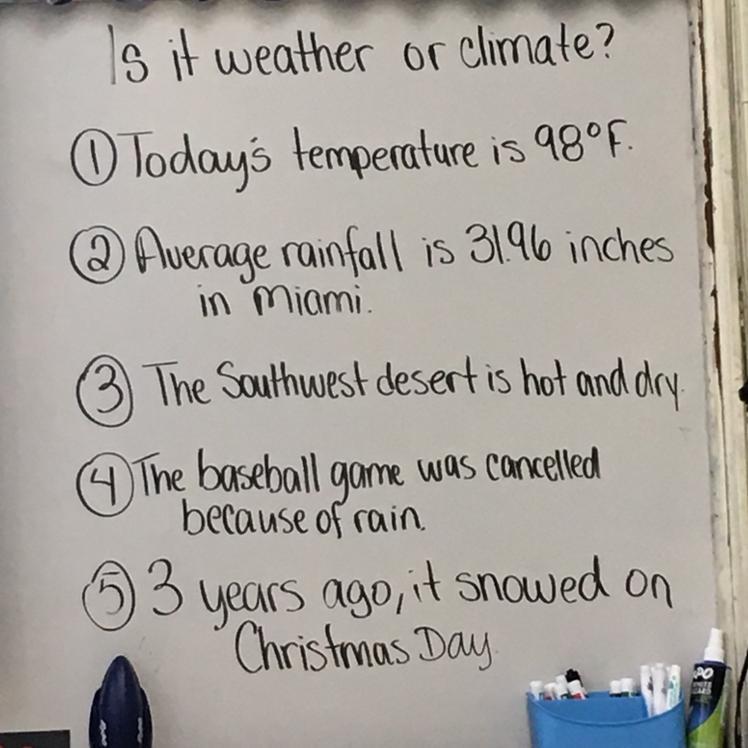 Is it weather or climate?
① Today's temperature is 98°F.
② Average rainfall is 31.96 inches
in Miami.
③ The Southwest desert is hot and dry.
④ The baseball game was cancelled
because of rain.
⑤ 3 years ago, it snowed on
Christmas Day.